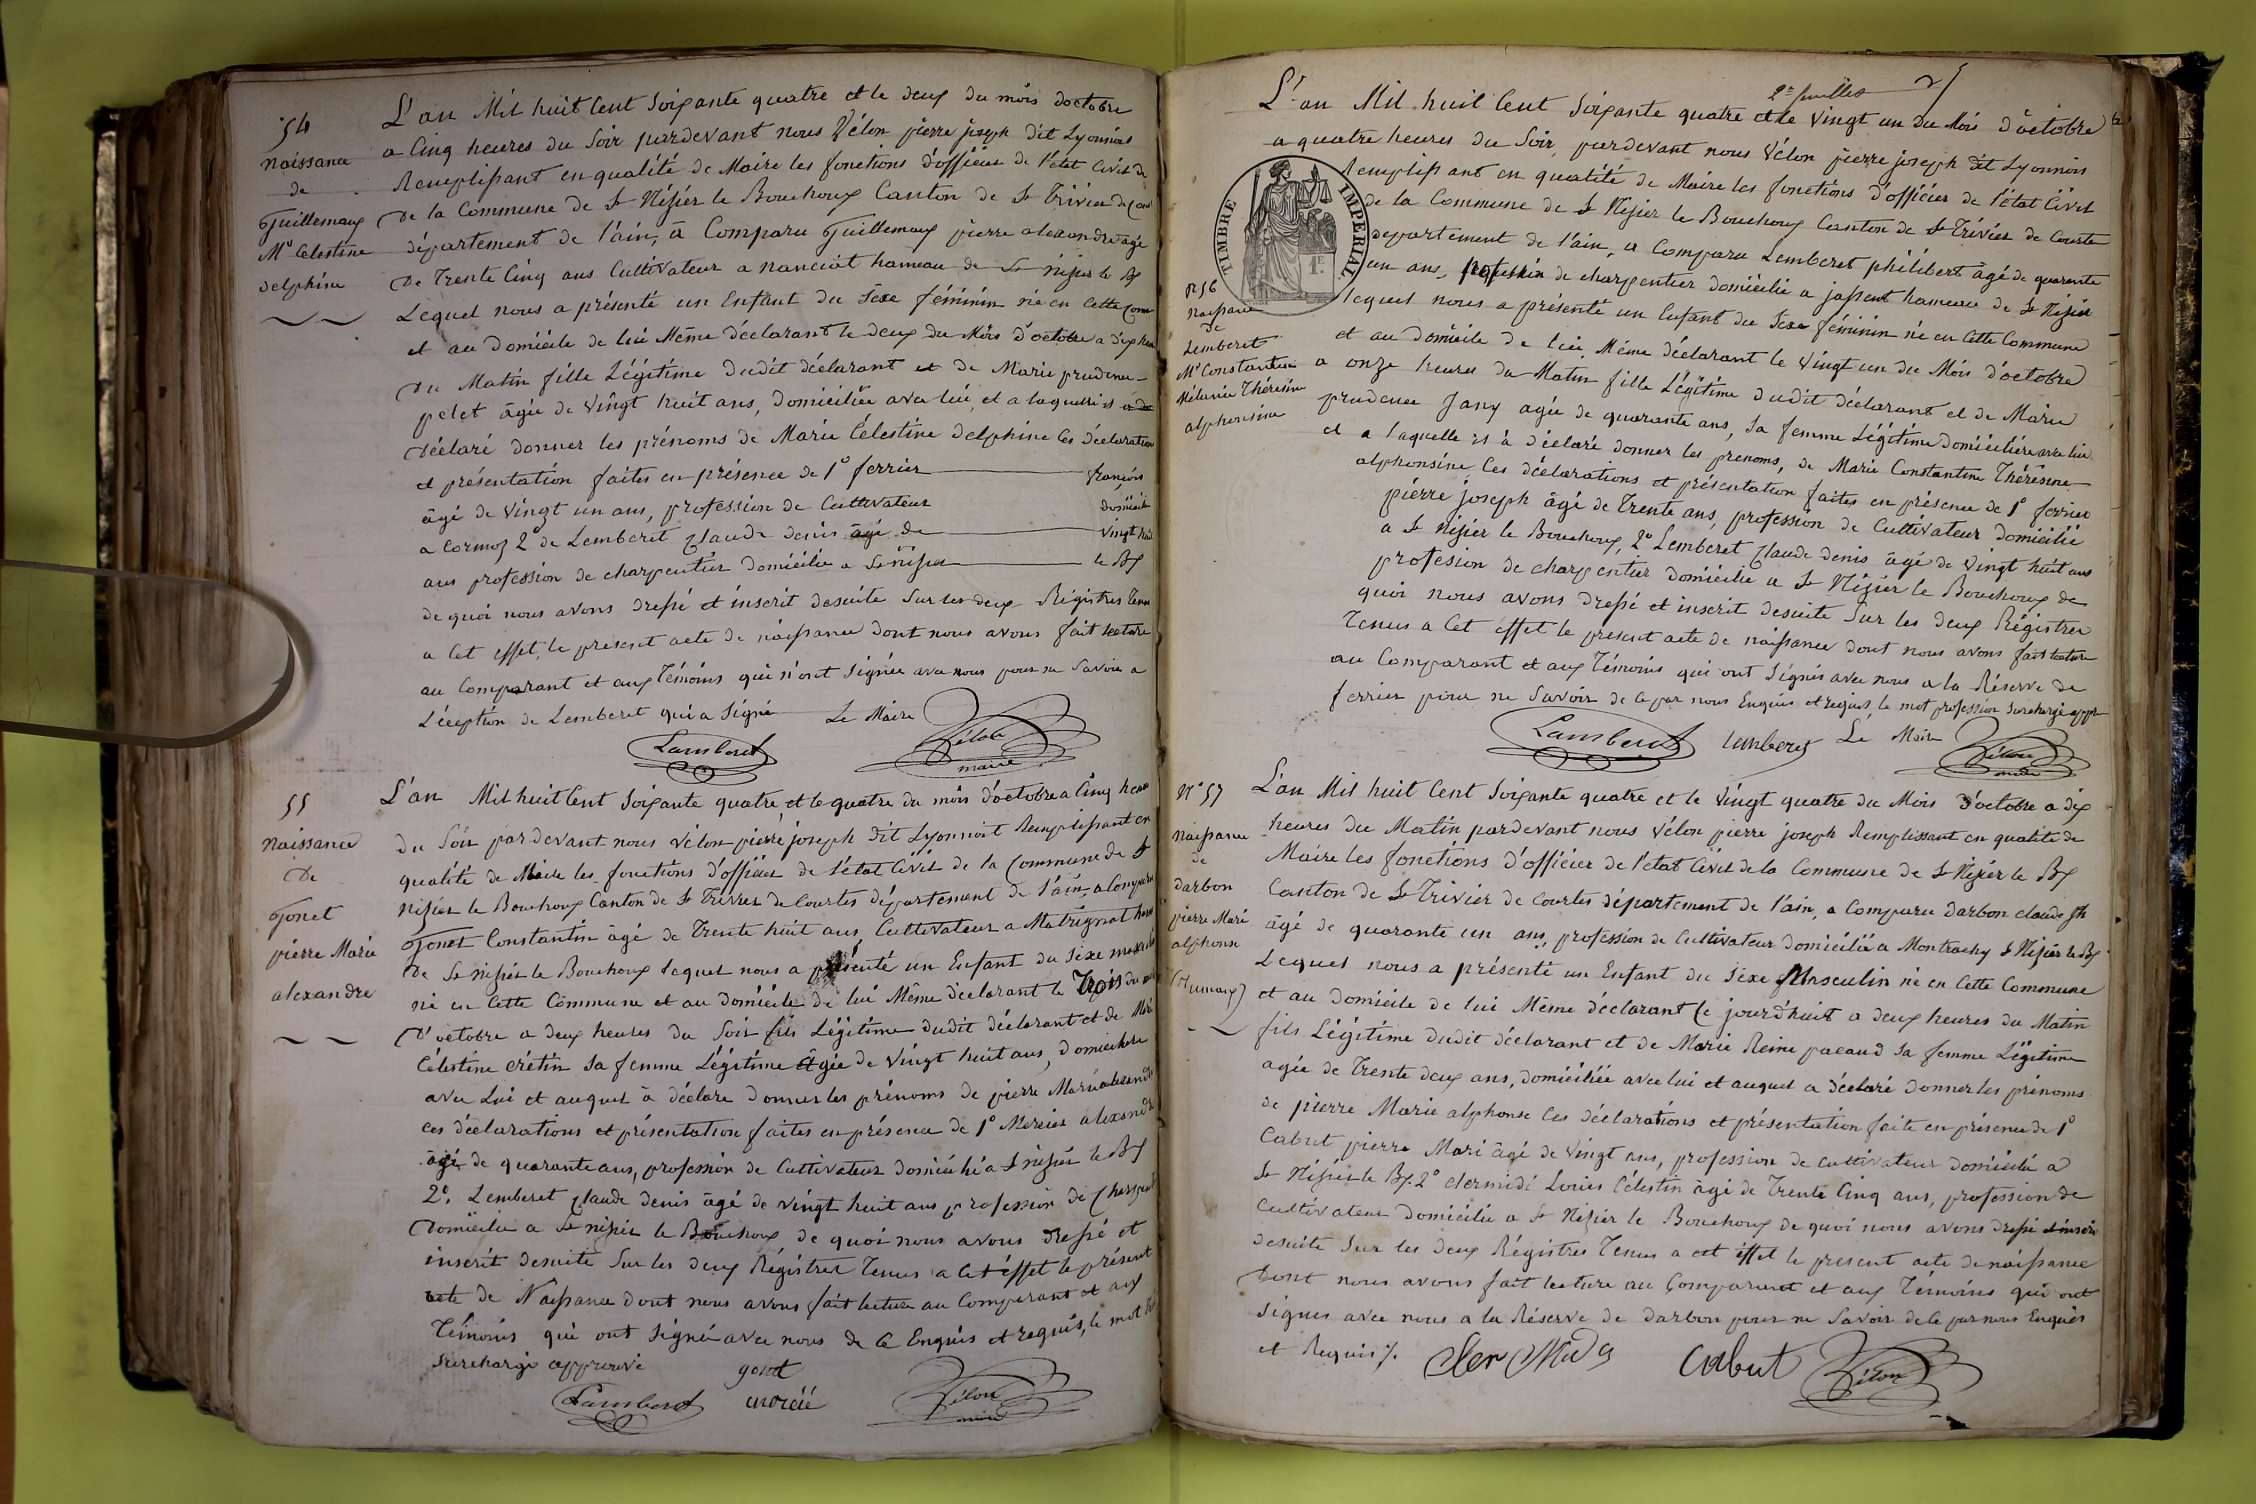 54
naissance
de
Guillemaux
Mie Celestine
delphine
L'an Mil huit Cent Soixante quatre et le deux du mois doctobre
a Cinq heures du Soir pardevant nous Vélon pierre joseph dit Lyonnois
Remplissant en qualité de Maire les fonctions d'officier de l'état Civil de
De la Commune de St Nisier le Bouchoux Canton de St Trivier de Cour
département de l'ain, a Comparu Guillemaux pierre alexandre agé
De Trente Cinq ans Cultivateur a nanciat hameau de St nisier le Bx
Lequel nous a présenté un Enfant du Sexe féminin né en Cette Com
et au Domicile de lui Même déclarant le deux du Mois d'octobre a dix heu
Du Matin fille Légitime dudit déclarant et de Marie prudence
pelet âgée de Vingt huit ans, domiciliée avec lui, et a laquelle il a
déclaré donner les prénoms de Marie Célestine delphine Ces déclaration
et présentation faites en présence de 1° ferrier françois
âgé de Vingt un ans, profession de Cultivateur domicilié
a Cormoz 2 de Lemberet Claude denis âgé de vingt huit
ans profession de charpentier domicilié a St nisier le Bx
de quoi nous avons dressé et inscrit desuite Sur les deux Régistres Tenu
a Cet effet, le présent acte de naissance dont nous avons fait lecture
au Comparant et aux Témoins qui n'ont Signée avec nous pour ne Savoir a
L'éception de Lemberet qui a Signé Le Maire
Lamberet Vélon
maire
55
naissance
De
Gonet
pierre Marie
alexandre
L'an Mil huit Cent Soixante quatre, et le quatre du mois d'octobre a Cinq heures
du Soir par devant nous Vélon pierre joseph dit Lyonnoit Remplissant en
qualité de Maire les fonctions d'officier de l'état Civil de la Commune de St
Nizier le Bouchoux Canton de St Trivier de Courtes département de l'ain, a Comparu
Gonet Constantin âgé de Trente huit ans Cultivateur a Matrignat ham
de St nisier le Bouchoux lequel nous a présenté un Enfant du Sexe mascul
né en Cette Commune et au domicile de lui Même déclarant le Trois du mois
D'octobre a deux heures du Soir fils Légitime dudit déclarant et de Marie
Célestine crétin Sa femme Légitime âgée de Vingt huit ans, domiciliée
avec Lui et auquel à déclare donner les prénoms de pierre Marie alexandre
ces déclarations et présentation faites en présence de 1° Mercier alexandre
âgé de quarante ans, profession de Cultivateur domicilié a St nisier le Bx
2°. Lemberet Claude denis âgé de vingt huit ans profession de Charpent
Domicilié a St nisier le Bouchoux de quoi nous avons dressé et
inscrit desuite Sur les deux Régistrer Tenus a Cet effet le présent
acte de Naissance dont nous avons fait lecture au Comparant et aux
Témoins qui ont Signé avec nous de Ce Enquis et requis, le mot
Surchargé approuvé gonet
Lamberet mercié Vélon
maire
2e feuillet
TIMBRE IMPERIAL
1F.
n 56
naissance
de
Lemberet
Mie Constantine
Mélanie Thérésine
alphonsine
L'an Mil huit Cent Soixante quatre et le Vingt un du Mois d'octobre
a quatre heures du Soir, pardevant nous Vélon pierre joseph dit Lyonnois
Remplissant en qualité de Maire les fonctions d'officier de l'état Civil
de la Commune de St Nisier le Bouchoux Canton de St Trivier de Courte
departement de l'ain, a Comparu Lemberet philibert âgé de quarente
un ans, profession de charpentier domicilié a jassent hameau de St Nisier
lequel nous a présenté un Enfant du Sexe féminin né en Cette Commune
et au domicile de lui Même déclarant le Vingt un du Mois d'octobre
a onze heures du Matin fille Légitime dudit déclarant et de Marie
prudence Jany agée de quarante ans, Sa femme Légitime domiciliée avec lui
et a laquelle il à déclaré donner les prenoms, de Marie Constantine Thérésine
alphonsine Ces déclarations et présentation faites en présence de 1° ferrier
pierre joseph âgé de Trente ans, profession de Cultivateur domicilié
a St Nisier le Bouchoux, 2° Lemberet Claude denis âgé de Vingt huit ans
profession de charpentier domicilié a St Nizier le Bouchoux de
quoi nous avons dressé et inscrit desuite Sur les deux Régistrer
Tenus a Cet effet le present acte de naissance dont nous avons fait lecture
au Comparant et aux Témoins qui ont Signés avec nous a la Réserve de
ferrier pour ne Savoir de Ce par nous Enquis et requis, le mot profession surchargé appr
Lamberet lemberet Le Maire Vélon
maire
N° 57
naissance
de
darbon
pierre Marie
alphonse
L'an Mil huit Cent Soixante quatre et le Vingt quatre du Mois d'octobre a dix
heures du Matin pardevant nous Vélon pierre joseph Remplissant en qualité de
Maire les fonctions d'officier de l'état Civil de la Commune de St Nizier le Bx
Canton de St Trivier de Courtes département de l'ain, a Comparu darbon claude jh
âgé de quarante un ans, profession de Cultivateur domicilié a Montrachy St Nizier le Bx
Lequel nous a présenté un Enfant du Sexe Masculin né en Cette Commune
et au domicile de lui Même déclarant Ce jourd'huit a deux heures du Matin
fils Légitime dudit déclarant et de Marie Reine pacaud Sa femme Légitime
agée de Trente deux ans, domiciliée avec lui et auquel a déclaré donner les prénoms
de pierre Marie alphonse Ces déclarations et présentation faite en présence de 1°
Cabut pierre Marie âgé de Vingt ans, profession de cultivateur domicilié a
St Nisier le Bx. 2° clermidi Louis Célestin âgé de Trente Cinq ans, profession de
Cultivateur domicilié a St Nizier le Bouchoux de quoi nous avons dressé et inscri
desuite Sur les deux Régistres Tenus a cet effet le present acte de naissance
Dont nous avons fait lecture au Comparant et aux Témoins qui ont
Signes avec nous a la Réserve de darbon pour ne Savoir de Ce par nous Enquis
et Requis %. Cabut Vélon